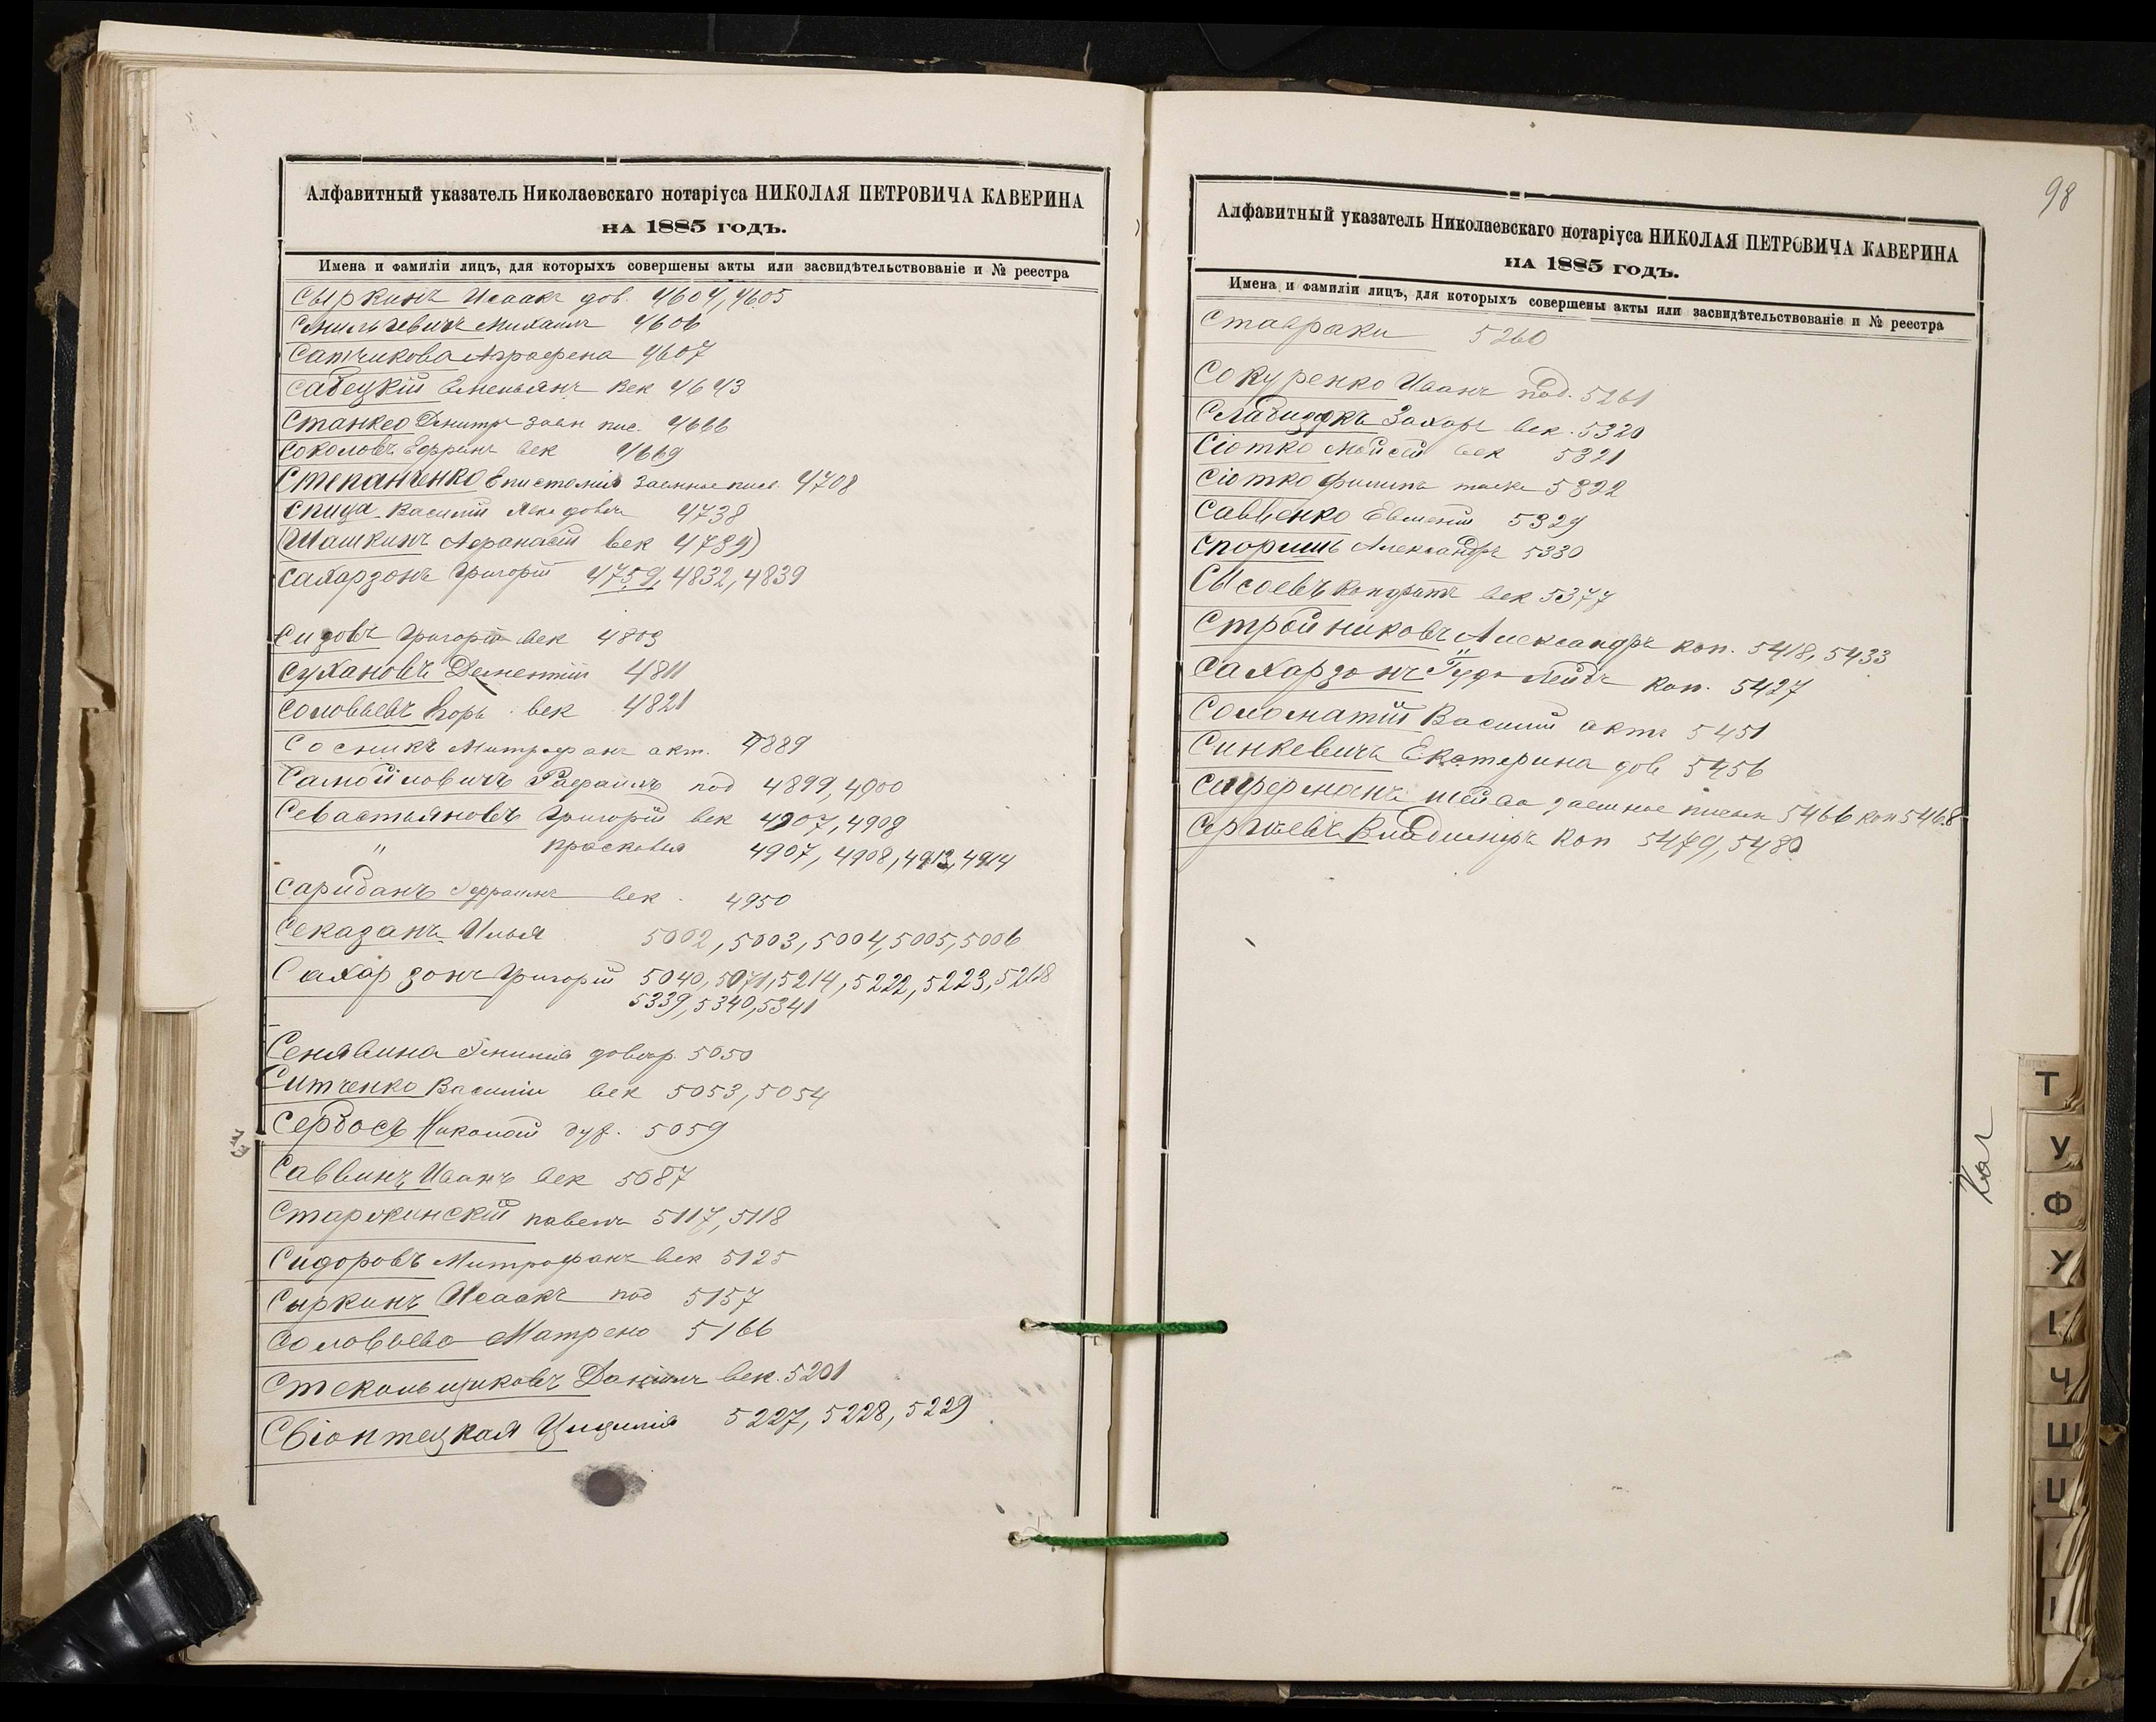 Алфавитный указатель Николаевскаго нотаріуса НИКОЛАЯ ПЕТРОВИЧА КАВЕРИНА
НА 1885 ГОДЪ.
Имена и фамиліи лицъ, для которыхъ совершены акты или засвидѣтельствованіе и № реестра
Сыркинъ Исаакъ дов. 4604, 4605
Михаилъ 4606
Сатчикова Аграфена 4607
Сабецкій Емельянъ век 4643
Станкео Дмитр заем пис. 4666
Соколовъ Ефримъ век 4669
Степанченко Епистомія заемное пись. 4708
Спица Василій 4738
(Шашкинъ Афанасій век 4739)
Сахарзонъ Григорій 4759, 4832, 4839
Сидовъ Григорій век 4803
Сухановъ Дементій 4811
Соловьевъ век 4821
Сосникъ Митрофанъ акт. 4889
Самойловичъ Рафаилъ под 4899, 4900
Севастьяновъ Григорій век 4907, 4908
" прасковья 4907, 4908, 4913, 4914
Сариданъ Эфраимъ век. 4950
Секазанъ Илья 5002, 5003, 5004, 5005, 5006
Сахарзонъ Григорій 5040, 5071, 5214, 5222, 5223, 5268
5339, 5340, 5341
Сенявина довѣр. 5050
Ситченко Василій век 5053, 5054
Сербосъ Николай дуб. 5059
Саввинъ Иванъ век 5087
павелъ 5117, 5118
Сидоровъ Митрофанъ век 5125
Сыркинъ Исаакъ под 5157
Соловьева Матрена 5166
Стекольщиковъ Даніилъ век. 5201
Свіонтецкая Цицилія 5227, 5228, 5229
98
Алфавитный указатель Николаевскаго нотаріуса НИКОЛАЯ ПЕТРОВИЧА КАВЕРИНА
НА 1885 ГОДЪ.
Имена и фамиліи лицъ, для которыхъ совершены акты или засвидѣтельствованіе и № реестра
Ставраки 5260
Сокуренко Иванъ под. 5261
Захаръ век. 5320
Сіотко Мойсей век 5321
Сіотко Филипъ также 5322
Савченко Евменій 5329
Спориш Александръ 5330
Сысоевъ Кондратъ век 5377
Стройниковъ Александръ коп. 5418, 5433
Сахарзонъ Гудо Лейбъ коп. 5427
Соломатій Василій актъ 5451
Синкевичъ Екатерина дов 5456
Сиферманъ заемное писем 5466 коп 5468
Сергѣевъ Владимиръ коп 5479, 5480
Т
У
Ф
Х
Ц
Ч
Ш
Щ